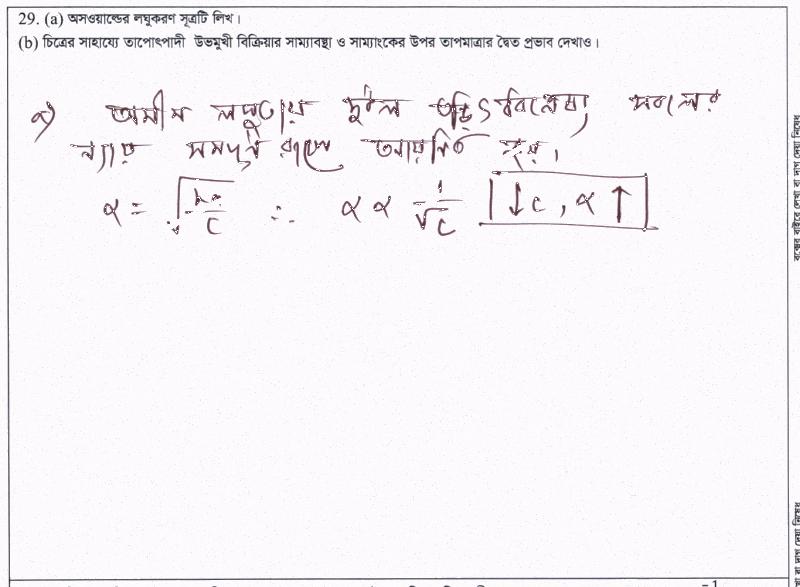 29. (a) অসওয়াল্ডের লঘুকরণ সূত্রটি লিখ।
(b) চিত্রের সাহায্যে তাপোৎপাদী উভমুখী বিক্রিয়ার সাম্যাবস্থা ও সাম্যাংকের উপর তাপমাত্রার দ্বৈত প্রভাব দেখাও।
a) অসীম লঘুতায় দুর্বল তড়িৎ বিশ্লেষ্য সবলের
ন্যায় সম্পূর্ণ রূপে আয়নিত হয়।
α = √(Ka/C) ∴ α ∝ 1/√C ↓C, α↑
-1